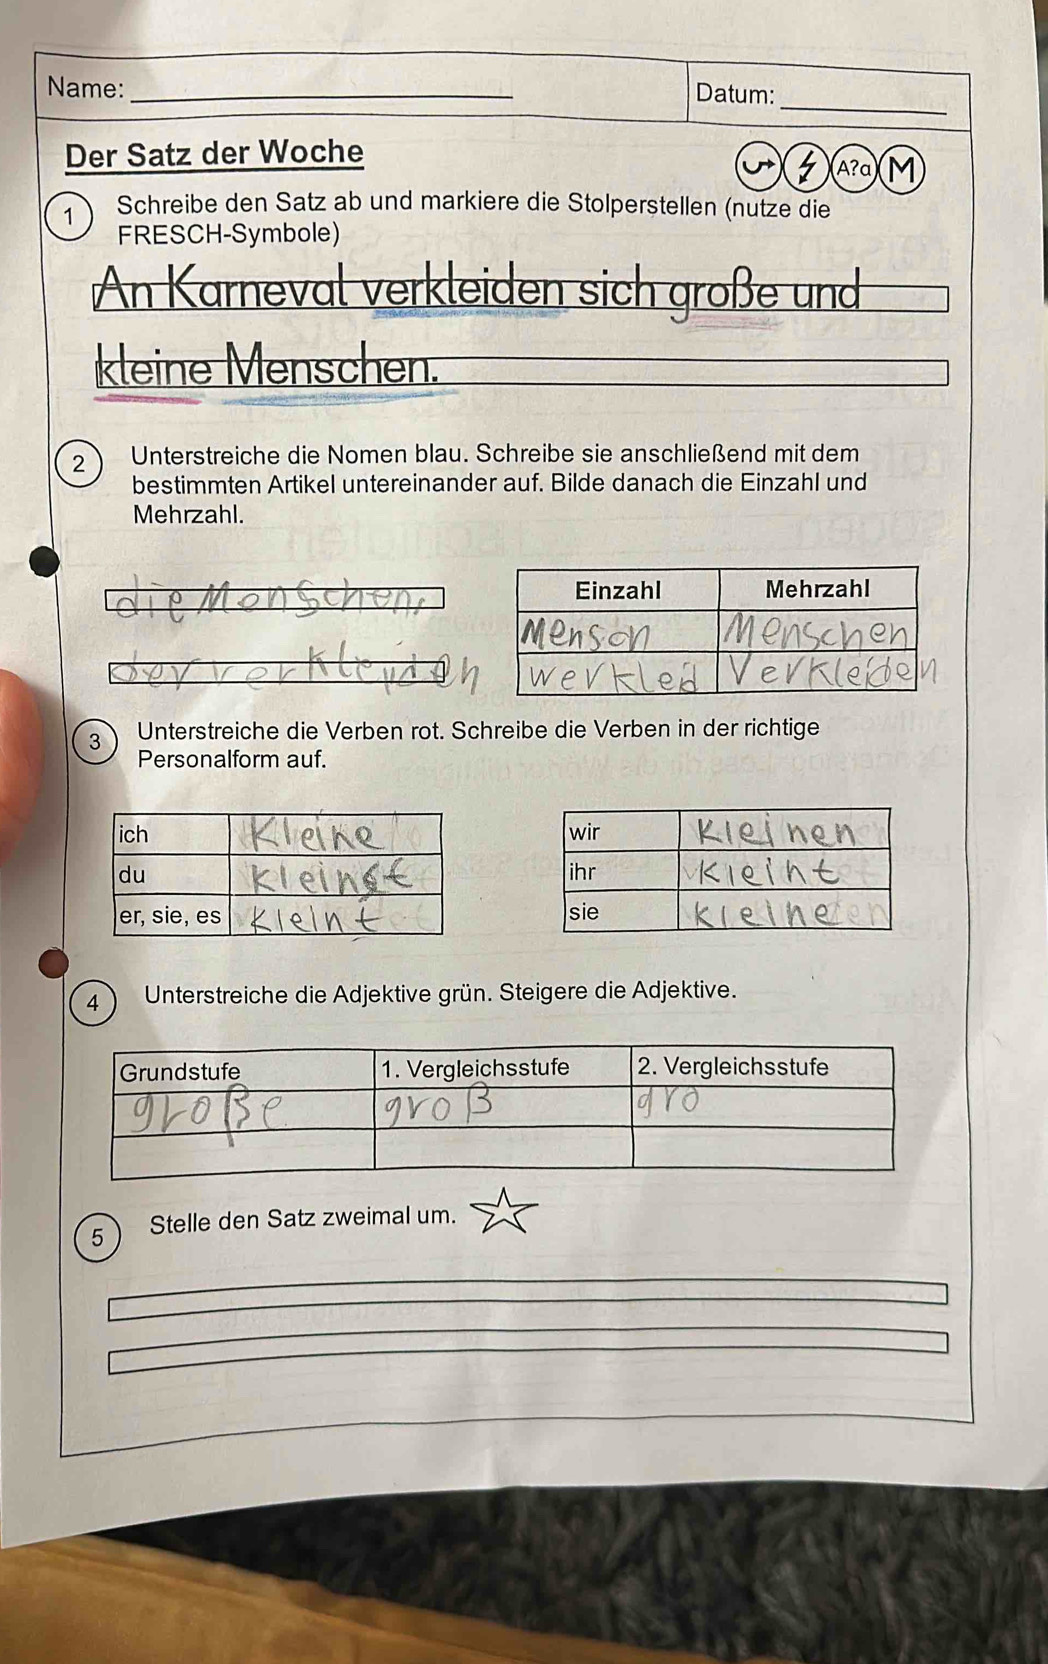 Name:
Datum:
Der Satz der Woche
A?a M
1 Schreibe den Satz ab und markiere die Stolperstellen (nutze die
FRESCH-Symbole)
An Karneval verkleiden sich große und
kleine Menschen.
2 Unterstreiche die Nomen blau. Schreibe sie anschließend mit dem
bestimmten Artikel untereinander auf. Bilde danach die Einzahl und
Mehrzahl.
die Menschen,
der verkleiden
Einzahl Mehrzahl
Menson Menschen
werkleid Verkleiden
3 Unterstreiche die Verben rot. Schreibe die Verben in der richtige
Personalform auf.
ich Kleine
du kleinst
er, sie, es kleint
wir kleinen
ihr kleint
sie kleineen
4 Unterstreiche die Adjektive grün. Steigere die Adjektive.
Grundstufe 1. Vergleichsstufe 2. Vergleichsstufe
große groß gro
5 Stelle den Satz zweimal um.